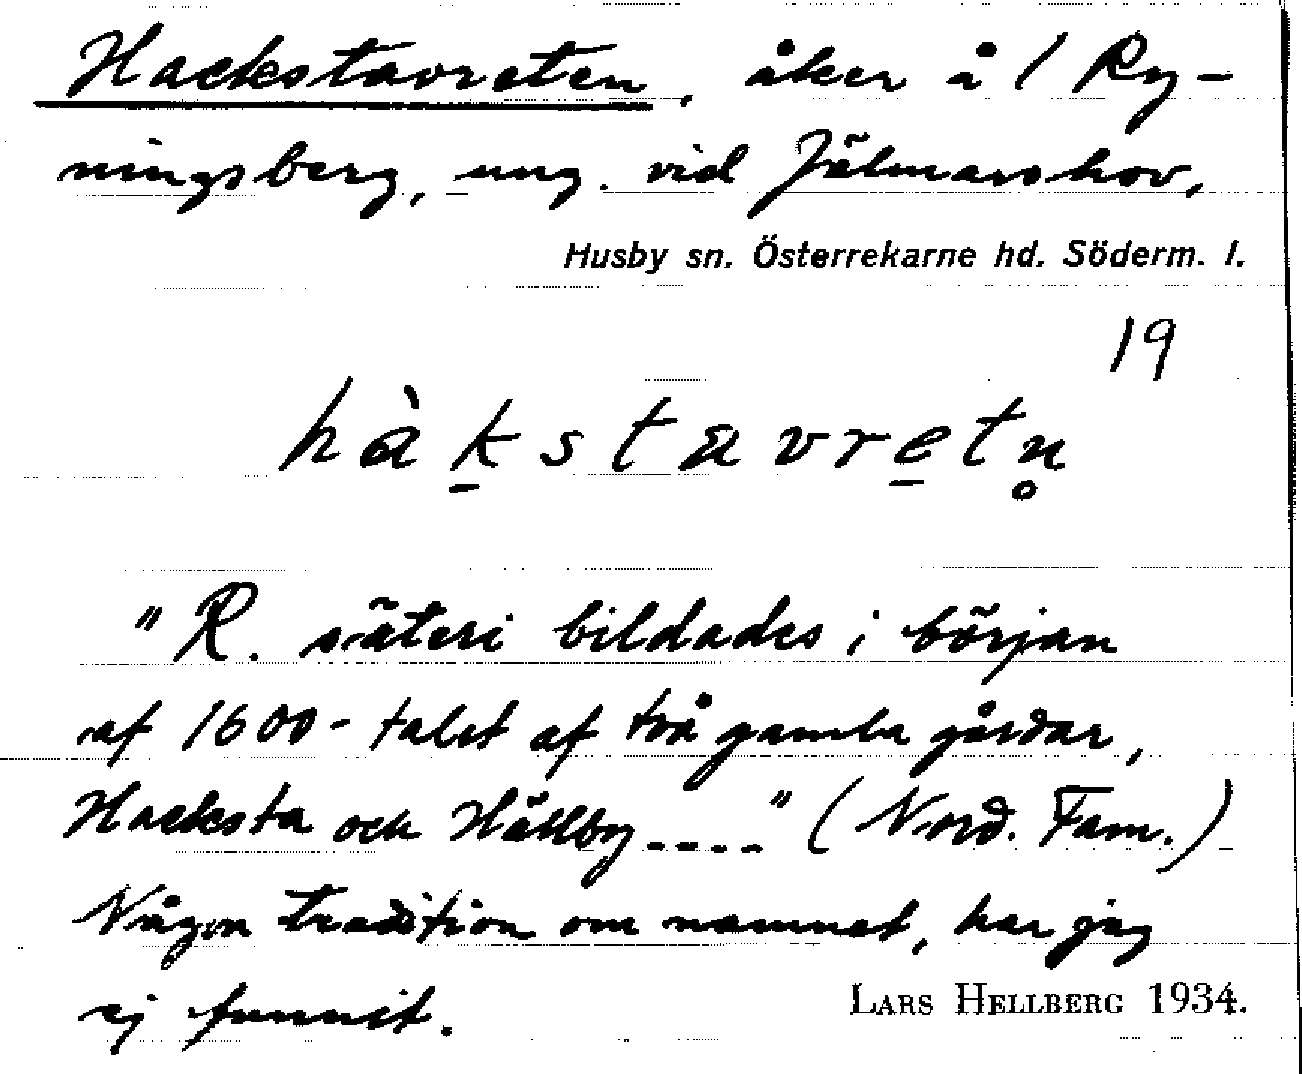 Hackstavreten, åker å 1 Ry-
ningsberg, ung. vid Jälmarshov,
Husby sn. Österrekarne hd. Söderm. l.
19
hàk̠stavre̠tn̥
"R. säteri bildades i början
af 1600-talet af två gamla gårdar,
Hacksta och Hällby...." (Nord. Fam.)
Någon tradition om namnet, har jag
ej funnit.
LARS HELLBERG 1934.